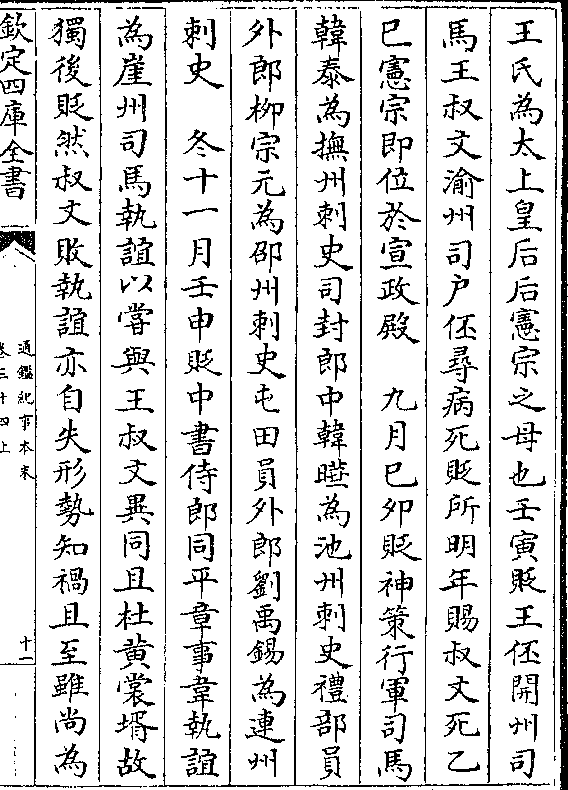 王氏為太上皇后后憲宗之母也壬寅貶王伾開州司
馬王叔文渝州司户伾尋病死貶所明年賜叔文死乙
巳憲宗即位於宣政殿　九月己夘貶神策行軍司馬
韓泰為撫州刺史司封郎中韓曄為池州刺史禮部員
外郎栁宗元為邵州刺史屯田員外郎劉禹錫為連州
刺史　冬十一月壬申貶中書侍郎同平章事韋執誼
為崖州司馬執誼以嘗與王叔文異同且杜黄裳壻故
獨後貶然叔文敗執誼亦自失形勢知禍且至雖尚為
欽定四庫全書
通鑑紀事本末
卷三十四上
十一